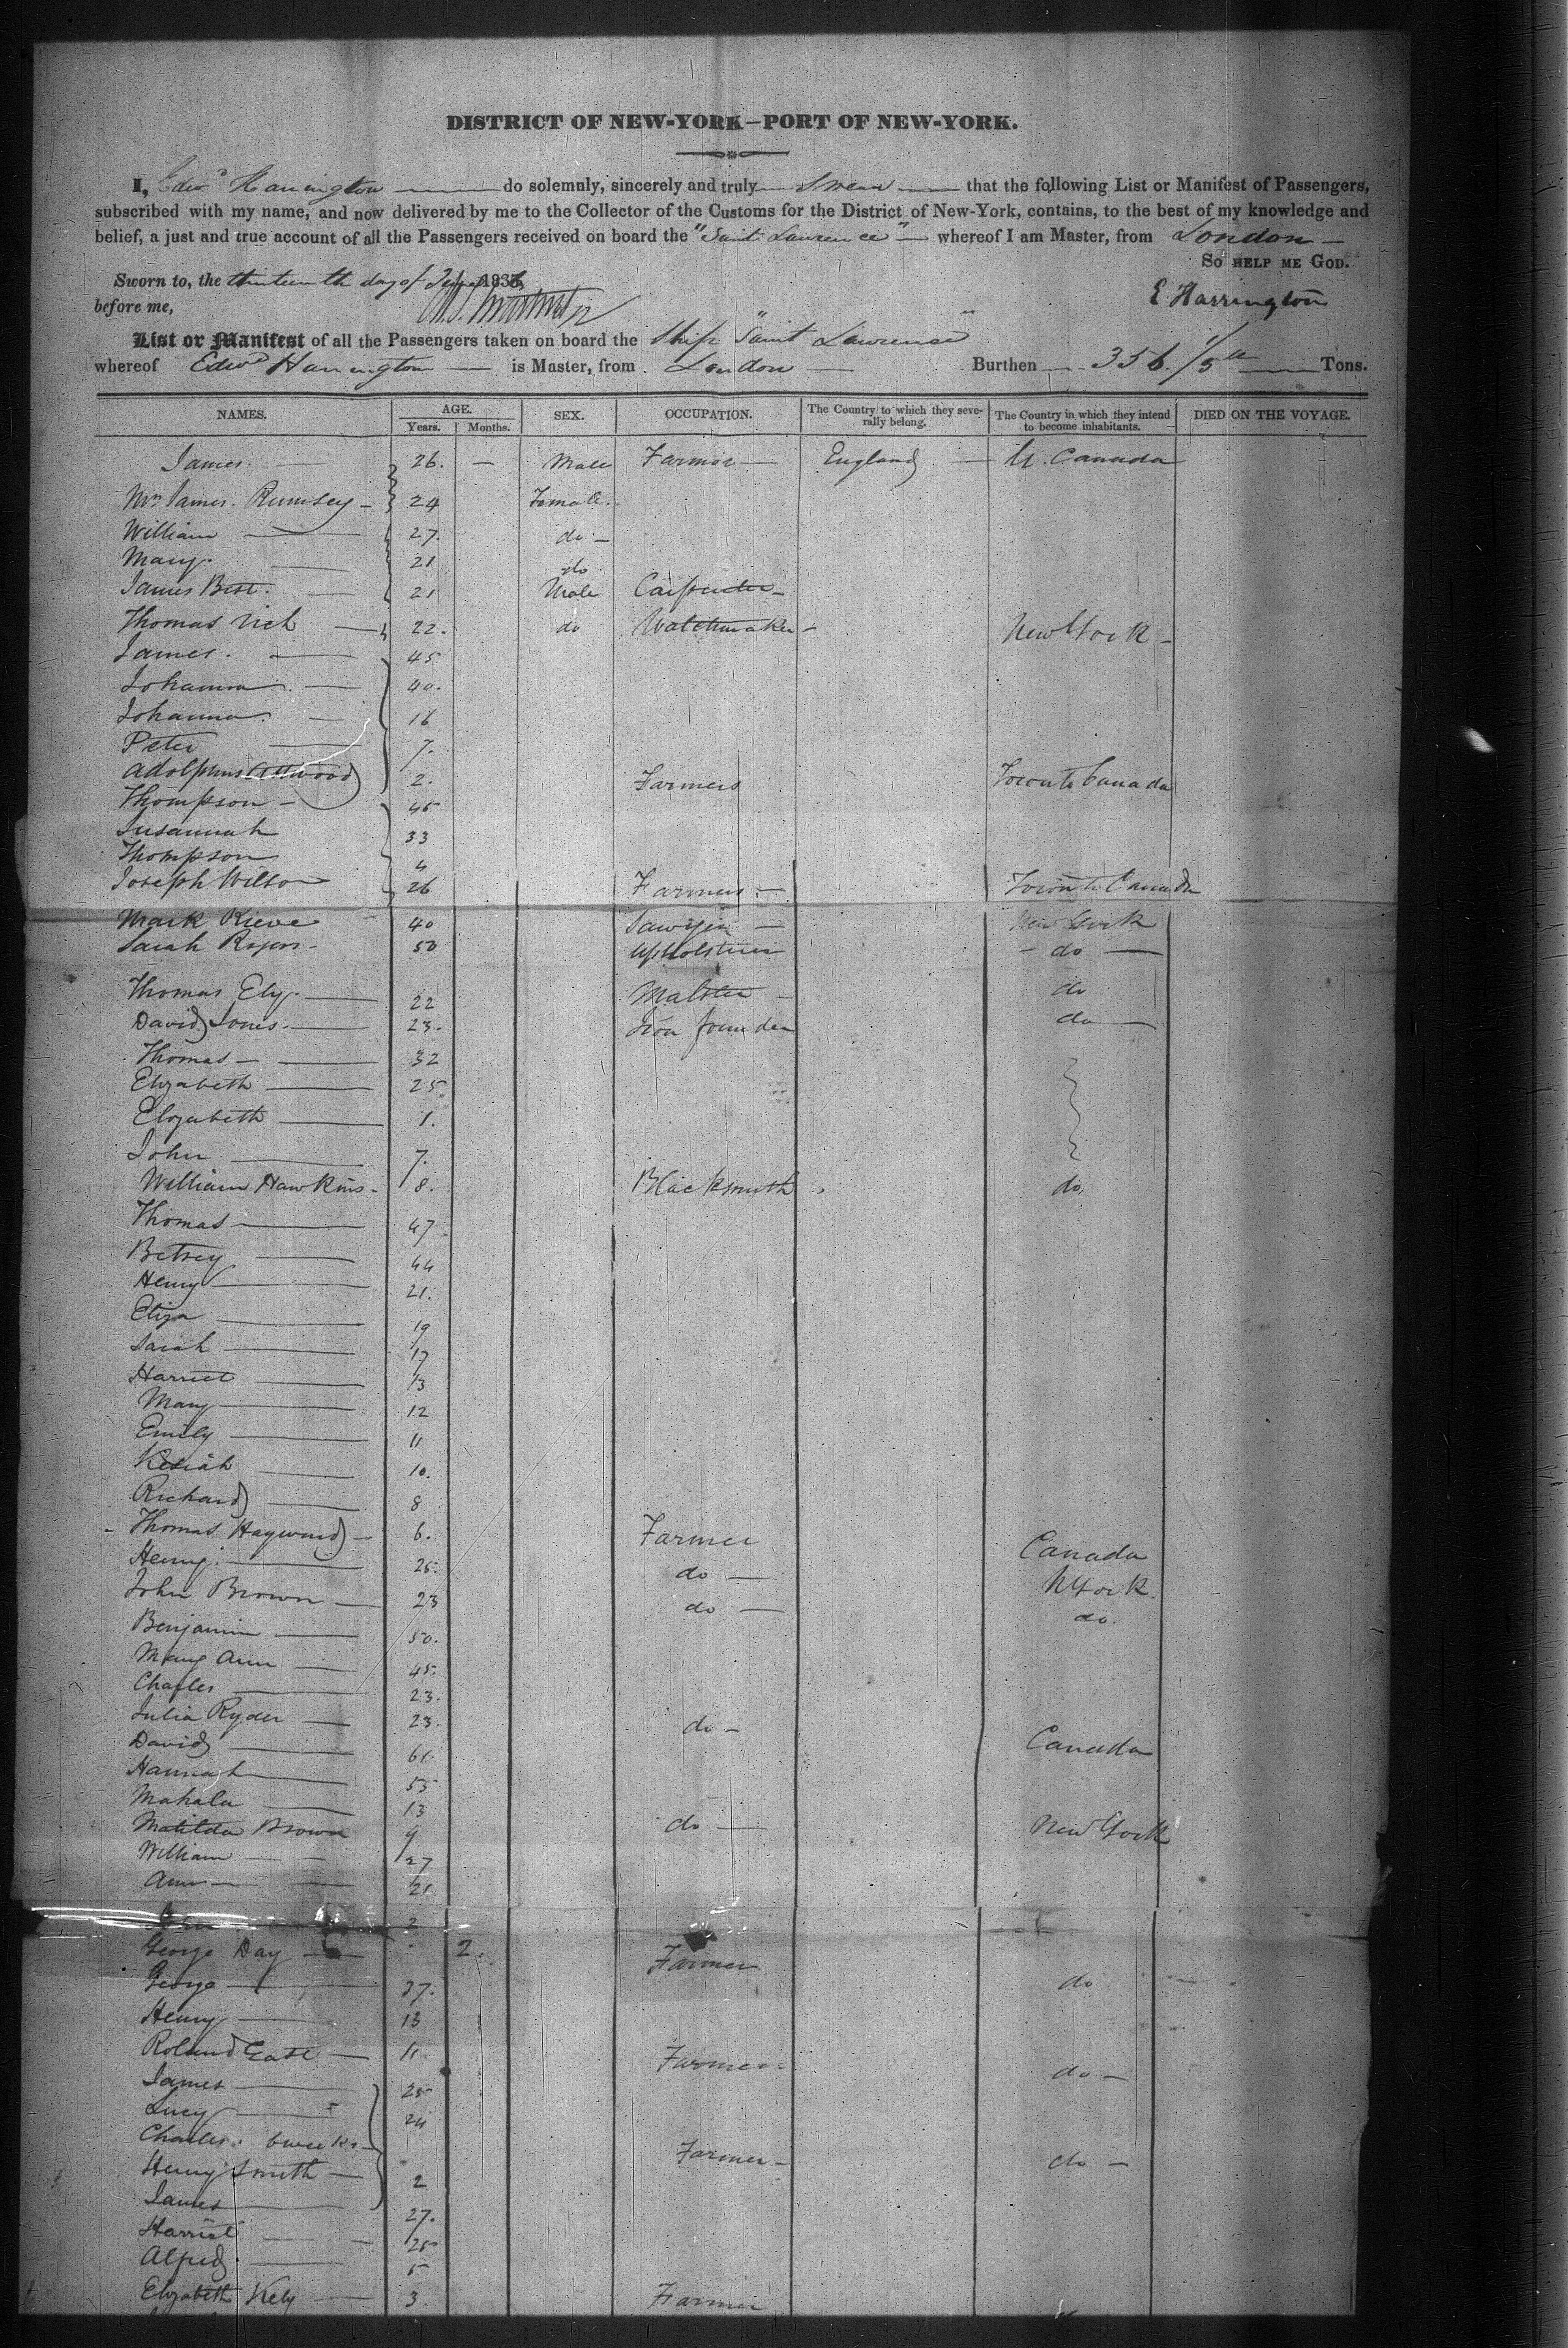 DISTRICT OF NEW-YORK—PORT OF NEW-YORK.
I, Edwd Harrington do solemnly, sincerely and truly Swear that the following List or Manifest of Passengers,
subscribed with my name, and now delivered by me to the Collector of the Customs for the District of New-York, contains, to the best of my knowledge and
belief, a just and true account of all the Passengers received on board the "Saint Lawrence" whereof I am Master, from London
So HELP ME GOD.
Sworn to, the thirteenth day of 183
before me,
E Harrington
List or Manifest of all the Passengers taken on board the Ship "Saint Lawrence"
whereof Edwd Harrington is Master, from London Burthen 356 Tons.
NAMES. AGE. SEX. OCCUPATION. The Country to which they severally belong. The Country in which they intend to become inhabitants. DIED ON THE VOYAGE.
Years. Months.
James 26. — Male Farmer England U. Canada
Mrs James Rumsey 24 Female
William 27. do
Mary 21 do
James Best 21 Male Carpenter
Thomas Rich 22. do Watchmaker New York
James 45
Johanna 40.
Johanna 16
Peter 7.
Adolphus Attwood 2. Farmers Toronto Canada
Thompson 45
Susannah 33
Thompson 4
Joseph Wilson 26 Farmers Toronto Canada
Mark Rieve 40 Sawyer New York
Sarah Rogers 50 Upholsterer do
Thomas Ely 22 Malster do
David Jones 23. Iron founder do
Thomas 32
Elizabeth 25
Elizabeth 1.
John 7.
William Hawkins 8. Blacksmith do
Thomas 47
Betsey 44
Henry 21.
Eliza 19
Sarah 17
Harriet 13
Mary 12
Emily 11
Kesiah 10.
Richard 8
Thomas Hayward 6. Farmer Canada
Henry 25. do N York
John Brown 23 do do.
Benjamin 50.
Mary Ann 45.
Charles 23.
Julia Ryder 23. do Canada
David 61.
Hannah 55
Mahala 13
Matilda Brown 9 do New York
William 27
Ann 21
2
George Day 2. Farmer do
George 37.
Henry 13
Roland East 11 Farmer do
James 25
Lucy 24
Charles 6 weeks
Henry Smith 2 Farmer do
James 27.
Harriet 25
Alfred 5
Elizabeth Kely 3. Farmer